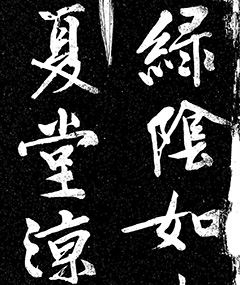 綠陰如
夏堂涼